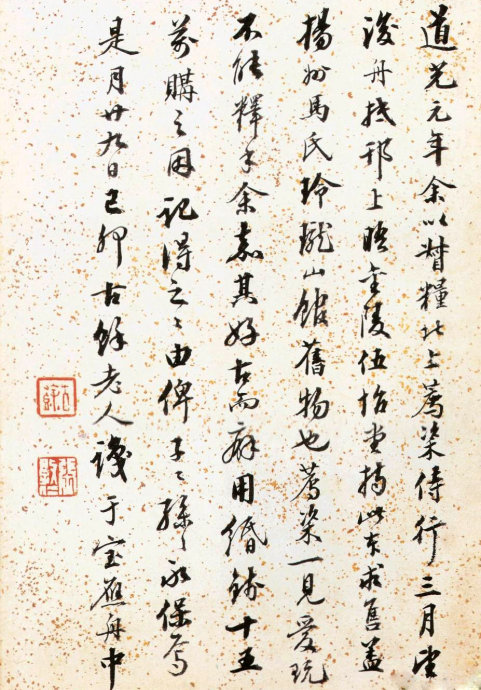 道光元年余以督糧北上薦粢侍行三月望
後舟抵邗上晤金陵伍詒堂持此本求售蓋
揚州馬氏玲瓏山館舊物也薦粢一見愛玩
不能釋手余嘉其好古而癖用緡錢十五
萬購之因記得之〻由俾子〻孫〻永保焉
是月廿九日己卯古餘老人識于宝應舟中
古餘